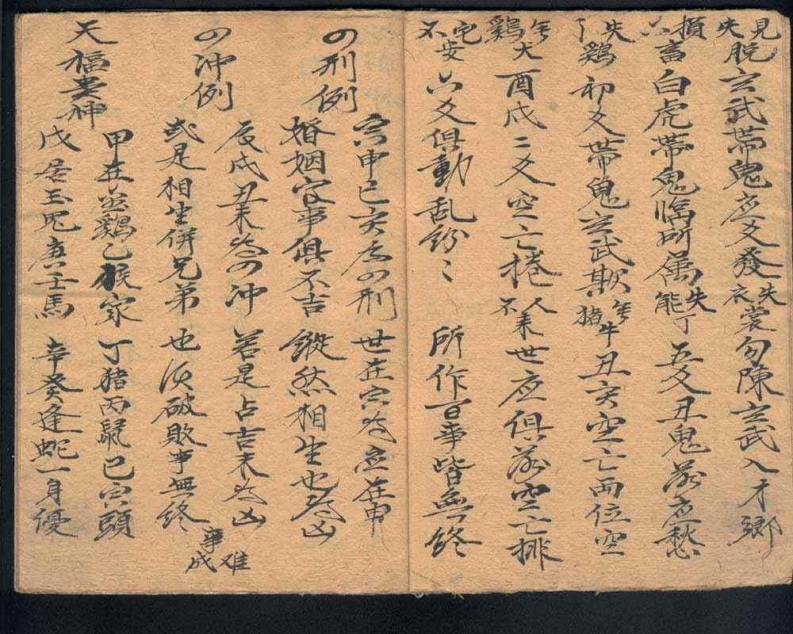 見失脫玄武帶鬼应爻發
失衣裳勾陳玄武入才鄉
損六畜白虎帶鬼臨所属
失能丁五爻丑鬼落应愁
失了鷄初爻帶鬼玄武欺
年猪牛丑亥空亡両位空
年鷄犬酉戌二爻空亡捲
人不耒世应俱落空亡排
宅不安六爻俱動乱紛〻
所作百事皆無終
の刑例
寅申巳亥為の刑 世在寅为应在申
婚姻官事俱不吉 縱然相生也为凶
の冲例
辰戌丑未为の冲 若是占吉未为凶
或是相生併兄弟 也須破敗事無終
事难成
天福貴神
甲在金鷄乙猴家 丁猪丙鼠己寅頭
戊居玉兎庚壬馬 辛癸逢蛇一身優